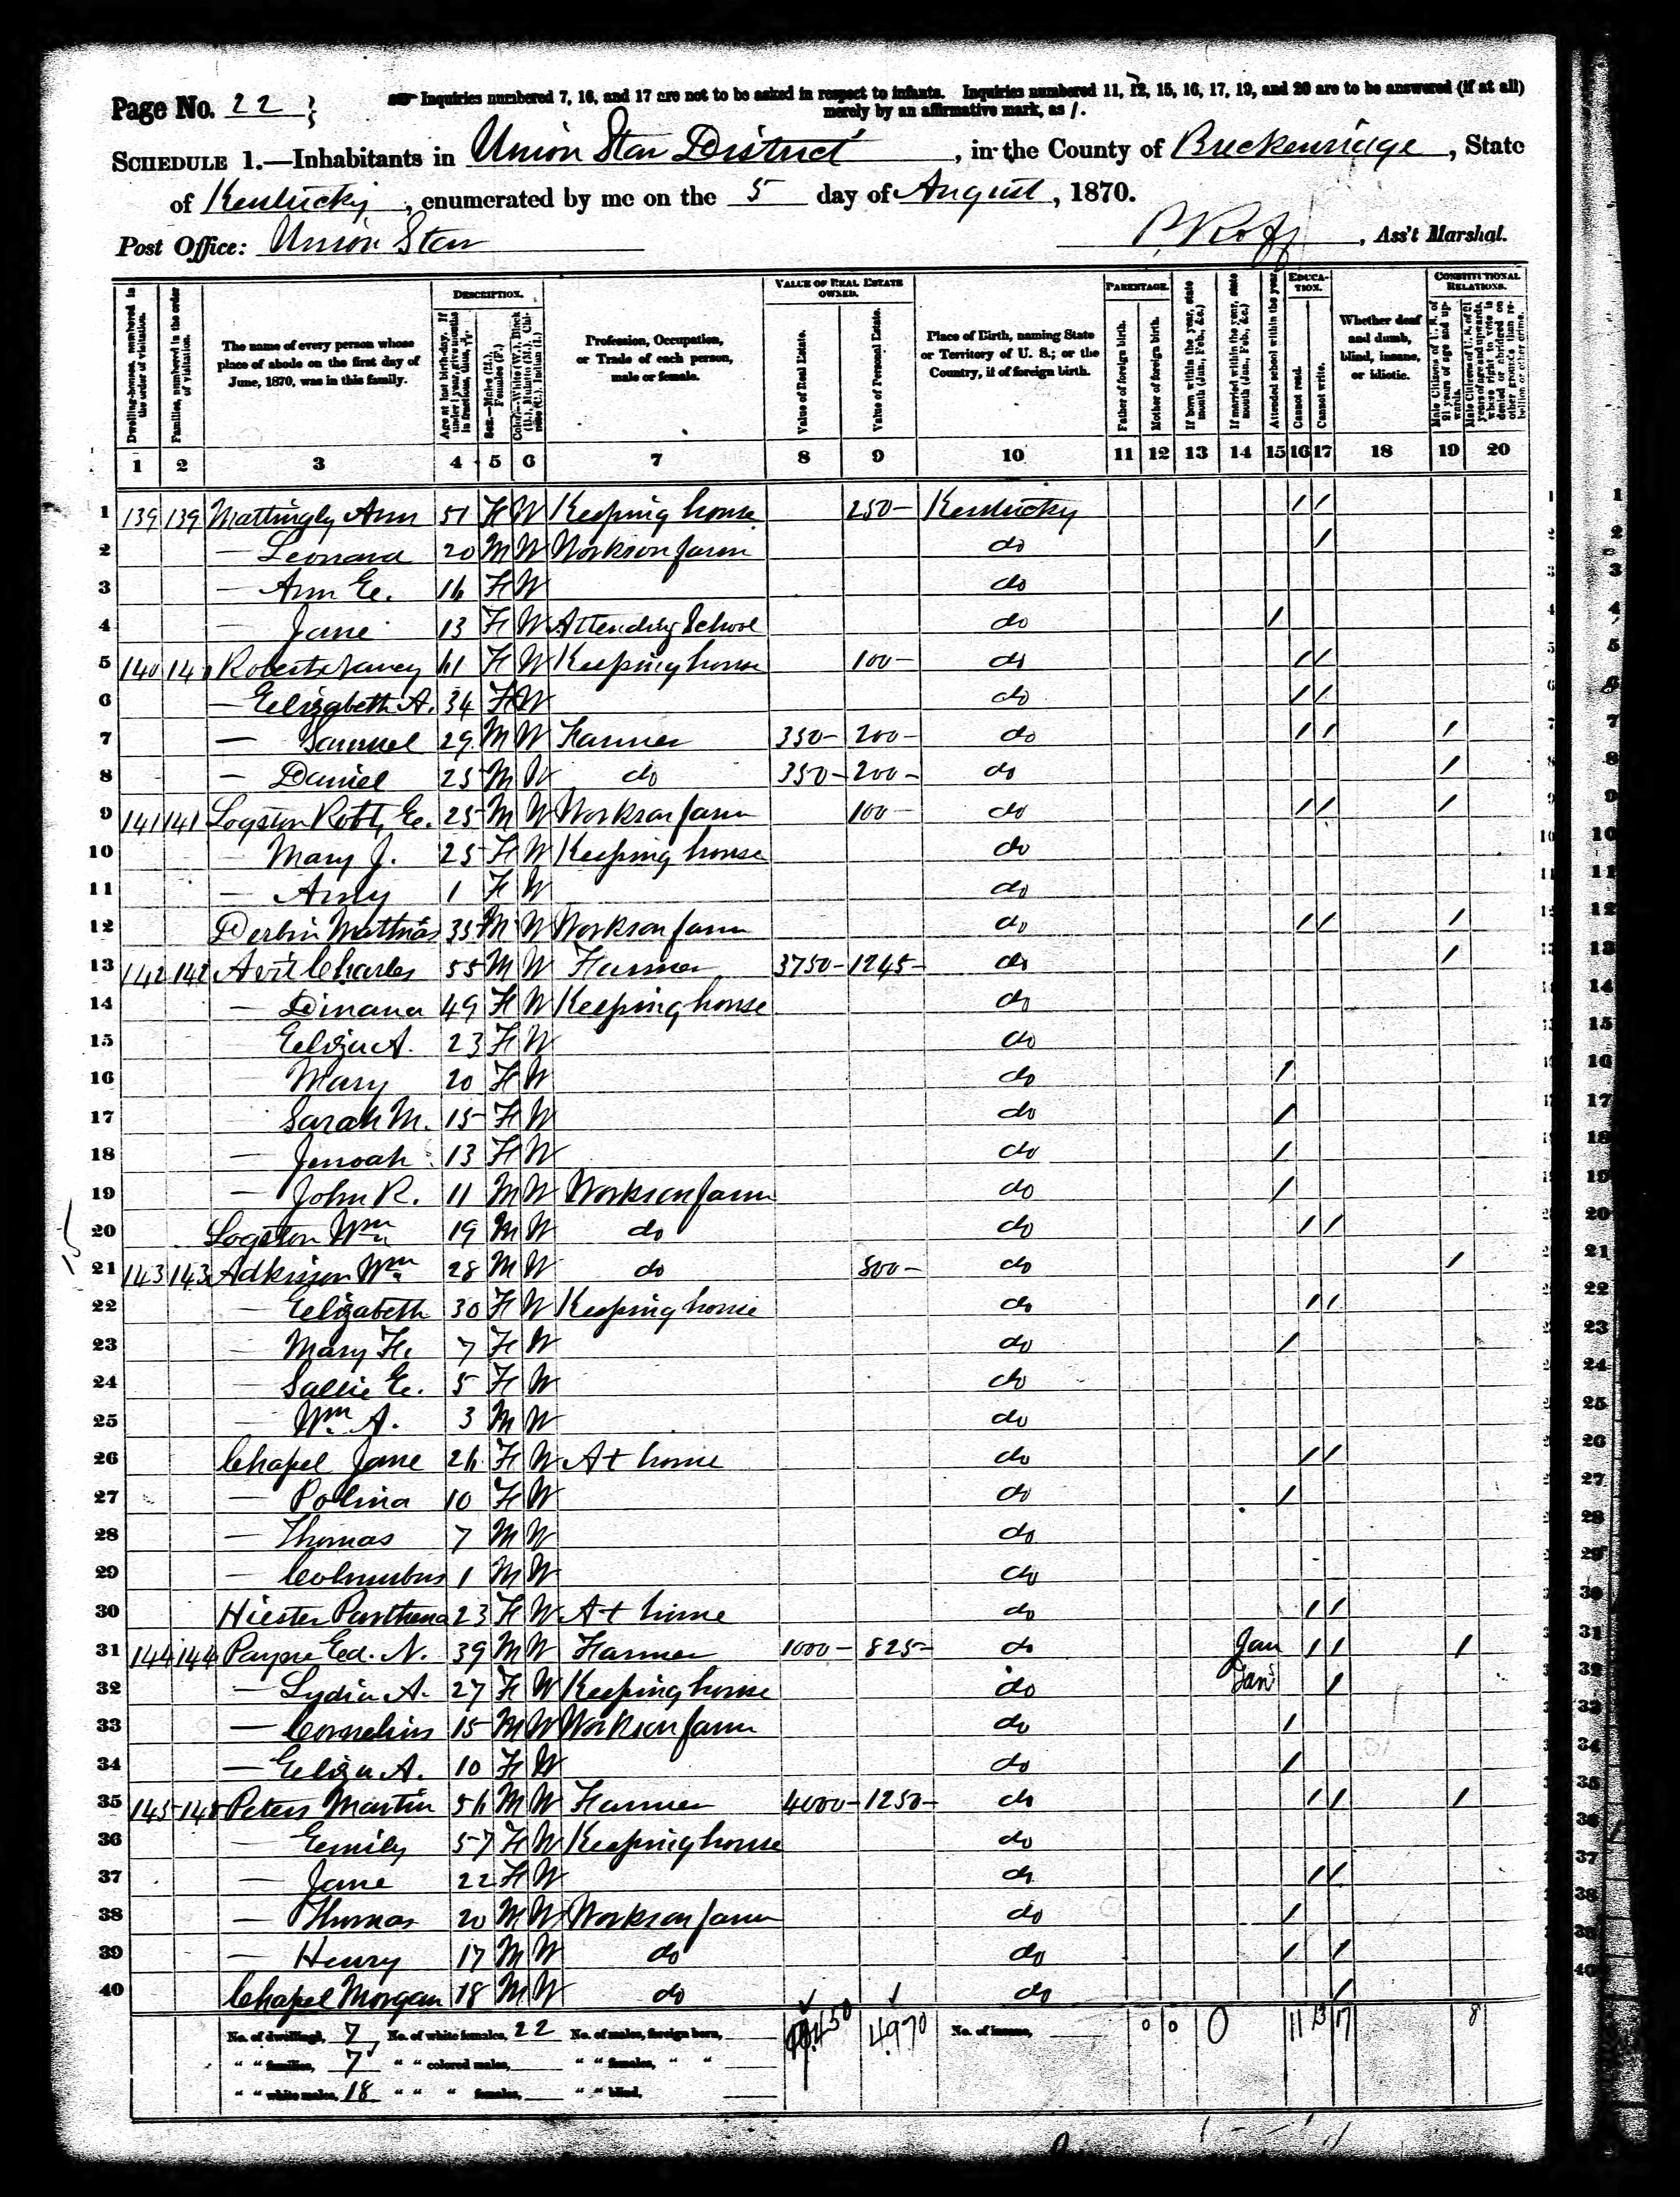 Page No. 22
Inquiries numbered 7, 16, and 17 are not to be asked in respect to infants. Inquiries numbered 11, 12, 15, 16, 17, 19, and 20 are to be answered (if at all)
merely by an affirmative mark, as /.
SCHEDULE 1.—Inhabitants in Union Star District, in the County of Breckenridge, State
of Kentucky, enumerated by me on the 5 day of August, 1870.
Post Office: Union Star
Ass't Marshal.
DESCRIPTION. VALUE OF REAL ESTATE OWNED. PARENTAGE. EDUCATION. CONSTITUTIONAL RELATIONS.
Dwelling-houses, numbered in the order of visitation.
Families, numbered in the order of visitation.
The name of every person whose place of abode on the first day of June, 1870, was in this family.
Age at last birth-day. If under 1 year, give months in fractions, thus, 3/12.
Sex.—Males (M.), Females (F.)
Color.—White (W.), Black (B.), Mulatto (M.), Chinese (C.), Indian (I.)
Profession, Occupation, or Trade of each person, male or female.
Value of Real Estate.
Value of Personal Estate.
Place of Birth, naming State or Territory of U. S.; or the Country, if of foreign birth.
Father of foreign birth.
Mother of foreign birth.
If born within the year, state month (Jan., Feb., &c.)
If married within the year, state month (Jan., Feb., &c.)
Attended school within the year.
Cannot read.
Cannot write.
Whether deaf and dumb, blind, insane, or idiotic.
Male Citizens of U. S. of 21 years of age and upwards.
Male Citizens of U. S. of 21 years of age and upwards, whose right to vote is denied or abridged on other grounds than rebellion or other crime.
1 2 3 4 5 6 7 8 9 10 11 12 13 14 15 16 17 18 19 20
1 139 139 Mattingly Ann 51 F W Keeping house 250- Kentucky / / 1
2 — Leonard 20 M W Works on farm do / 2
3 — Ann E. 16 F W do 3
4 — Jane 13 F W Attending School do / 4
5 140 140 Roberts Nancy 61 F W Keeping house 100- do / / 5
6 — Elizabeth A. 34 F W do / / 6
7 — Samuel 29 M W Farmer 350- 200- do / / / 7
8 — Daniel 25 M W do 350- 200- do / 8
9 141 141 Logston Robt, E. 25 M W Works on farm 100- do / / / 9
10 — Mary J. 25 F W Keeping house do 10
11 — Amy 1 F W do 11
12 Derbin Matthias 35 M W Works on farm do / / / 12
13 142 142 Avit Charles 55 M W Farmer 3750- 1245- do / 13
14 — Dinana 49 F W Keeping house do 14
15 — Eliza A. 23 F W do 15
16 — Mary 20 F W do / 16
17 — Sarah M. 15 F W do / 17
18 — Jenoah 13 F W do / 18
19 — John R. 11 M W Works on farm do / 19
20 Logston Wm 19 M W do do / / 20
21 143 143 Adkisson Wm 28 M W do 800- do / 21
22 — Elizabeth 30 F W Keeping house do / / 22
23 — Mary F. 7 F W do / 23
24 — Sallie E. 5 F W do 24
25 — Wm A. 3 M W do 25
26 Chapel Jane 26 F W At home do / / 26
27 — Polina 10 F W do / 27
28 — Thomas 7 M W do 28
29 — Columbus 1 M W do 29
30 Hiester Parthena 23 F W At home do / / 30
31 144 144 Payne Ed. N. 39 M W Farmer 1000- 825- do Jan / / / 31
32 — Lydia A. 27 F W Keeping house do Jan / 32
33 — Cornelius 15 M W Works on farm do / 33
34 — Eliza A. 10 F W do / 34
35 145 145 Peters Martin 56 M W Farmer 4000- 1250- do / / / 35
36 — Emily 57 F W Keeping house do 36
37 — Jane 22 F W do / / 37
38 — Thomas 20 M W Works on farm do / 38
39 — Henry 17 M W do do / / 39
40 Chapel Morgan 18 M W do do / 40
No. of dwellings, 7 No. of white females, 22 No. of males, foreign born, 4970 No. of insane, 0 0 0 11 13 17 8
" " families, 7 " " colored males, " " females, " "
" " white males, 18 " " " females, " " blind,